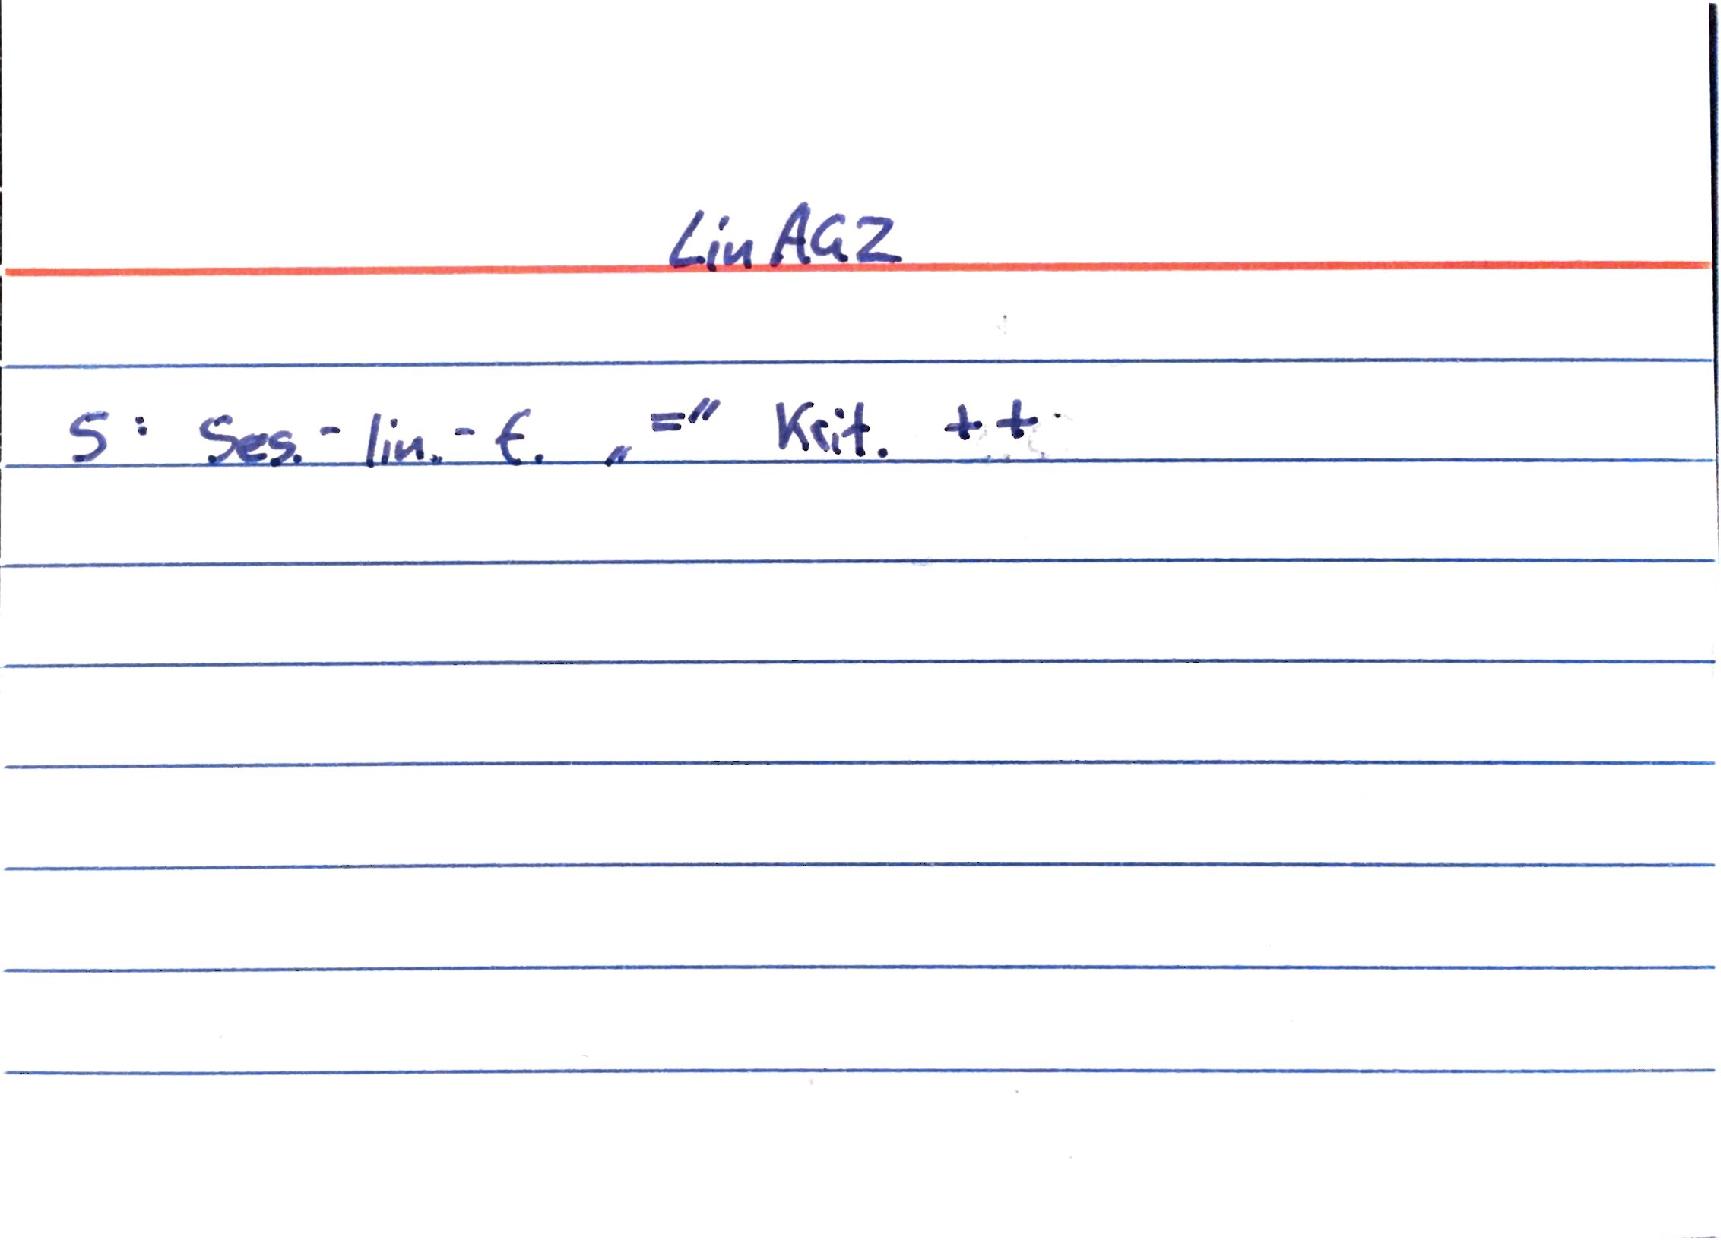 LinAG2
S: Ses.-lin.-f. „=" Krit. ++